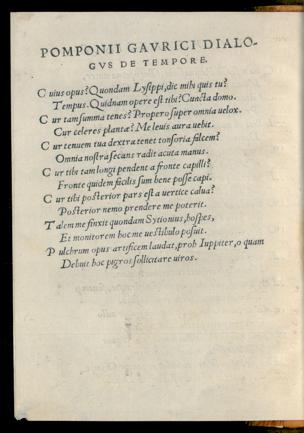 POMPONII GAVRICI DIALO-
GVS DE TEMPORE.
C uius opus? Quondam Lysippi, dic mihi quis tu?
Tempus. Quidnam opere est tibi? Cuncta domo.
C ur tam summa tenes? Propero super omnia uelox.
Cur celeres plantæ? Me leuis aura uehit.
C ur tenuem tua dextra tenet tonsoria falcem?
Omnia nostra secans radit acuta manus.
C ur tibi tam longi pendent a fronte capilli?
Fronte quidem facilis sum bene posse capi.
C ur tibi posterior pars est a uertice calua?
Posterior nemo prendere me poterit.
T alem me finxit quondam Sytionius, hospes,
Et monitorem hoc me uestibulo posuit.
P ulchrum opus artificem laudat, proh Iuppiter, o quam
Debuit hoc pigros sollicitare uiros.